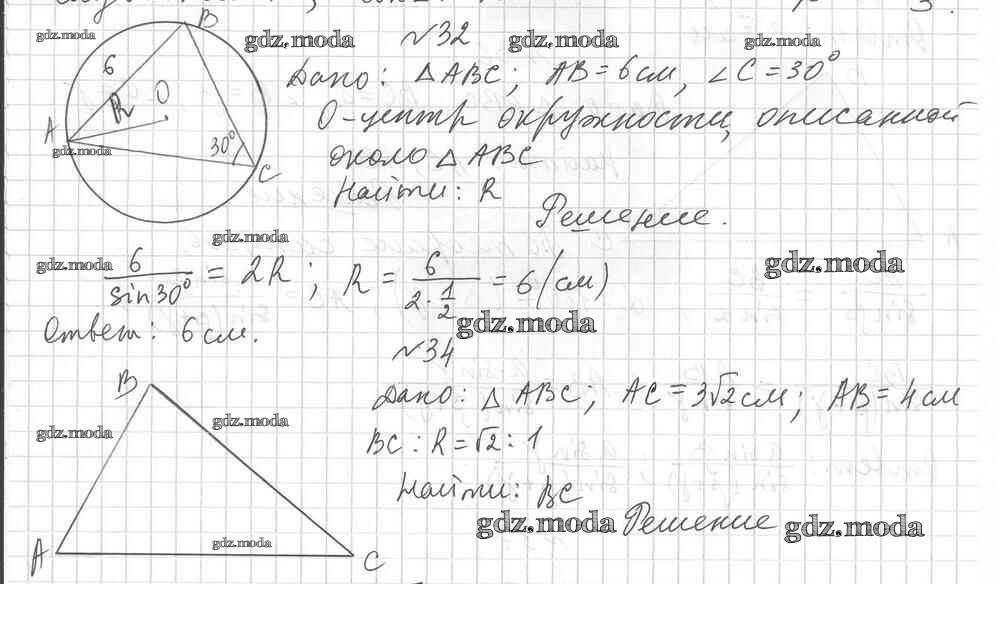 B
gdz.moda gdz.moda №32 gdz.moda gdz.moda
6
Дано: △ABC; AB = 6 см, ∠C = 30°
R O
O-центр окружности, описанной
A
gdz.moda 30° около △ABC
C
Найти: R
Решение.
gdz.moda
gdz.moda 6/sin30° = 2R; R = 6/(2·1/2) = 6 (см) gdz.moda
Ответ: 6 см. gdz.moda
№34
B
Дано: △ABC; AC = 3√2 см; AB = 4 см
gdz.moda gdz.moda
BC : R = √2 : 1
Найти: BC
gdz.moda Решение gdz.moda
gdz.moda
A C